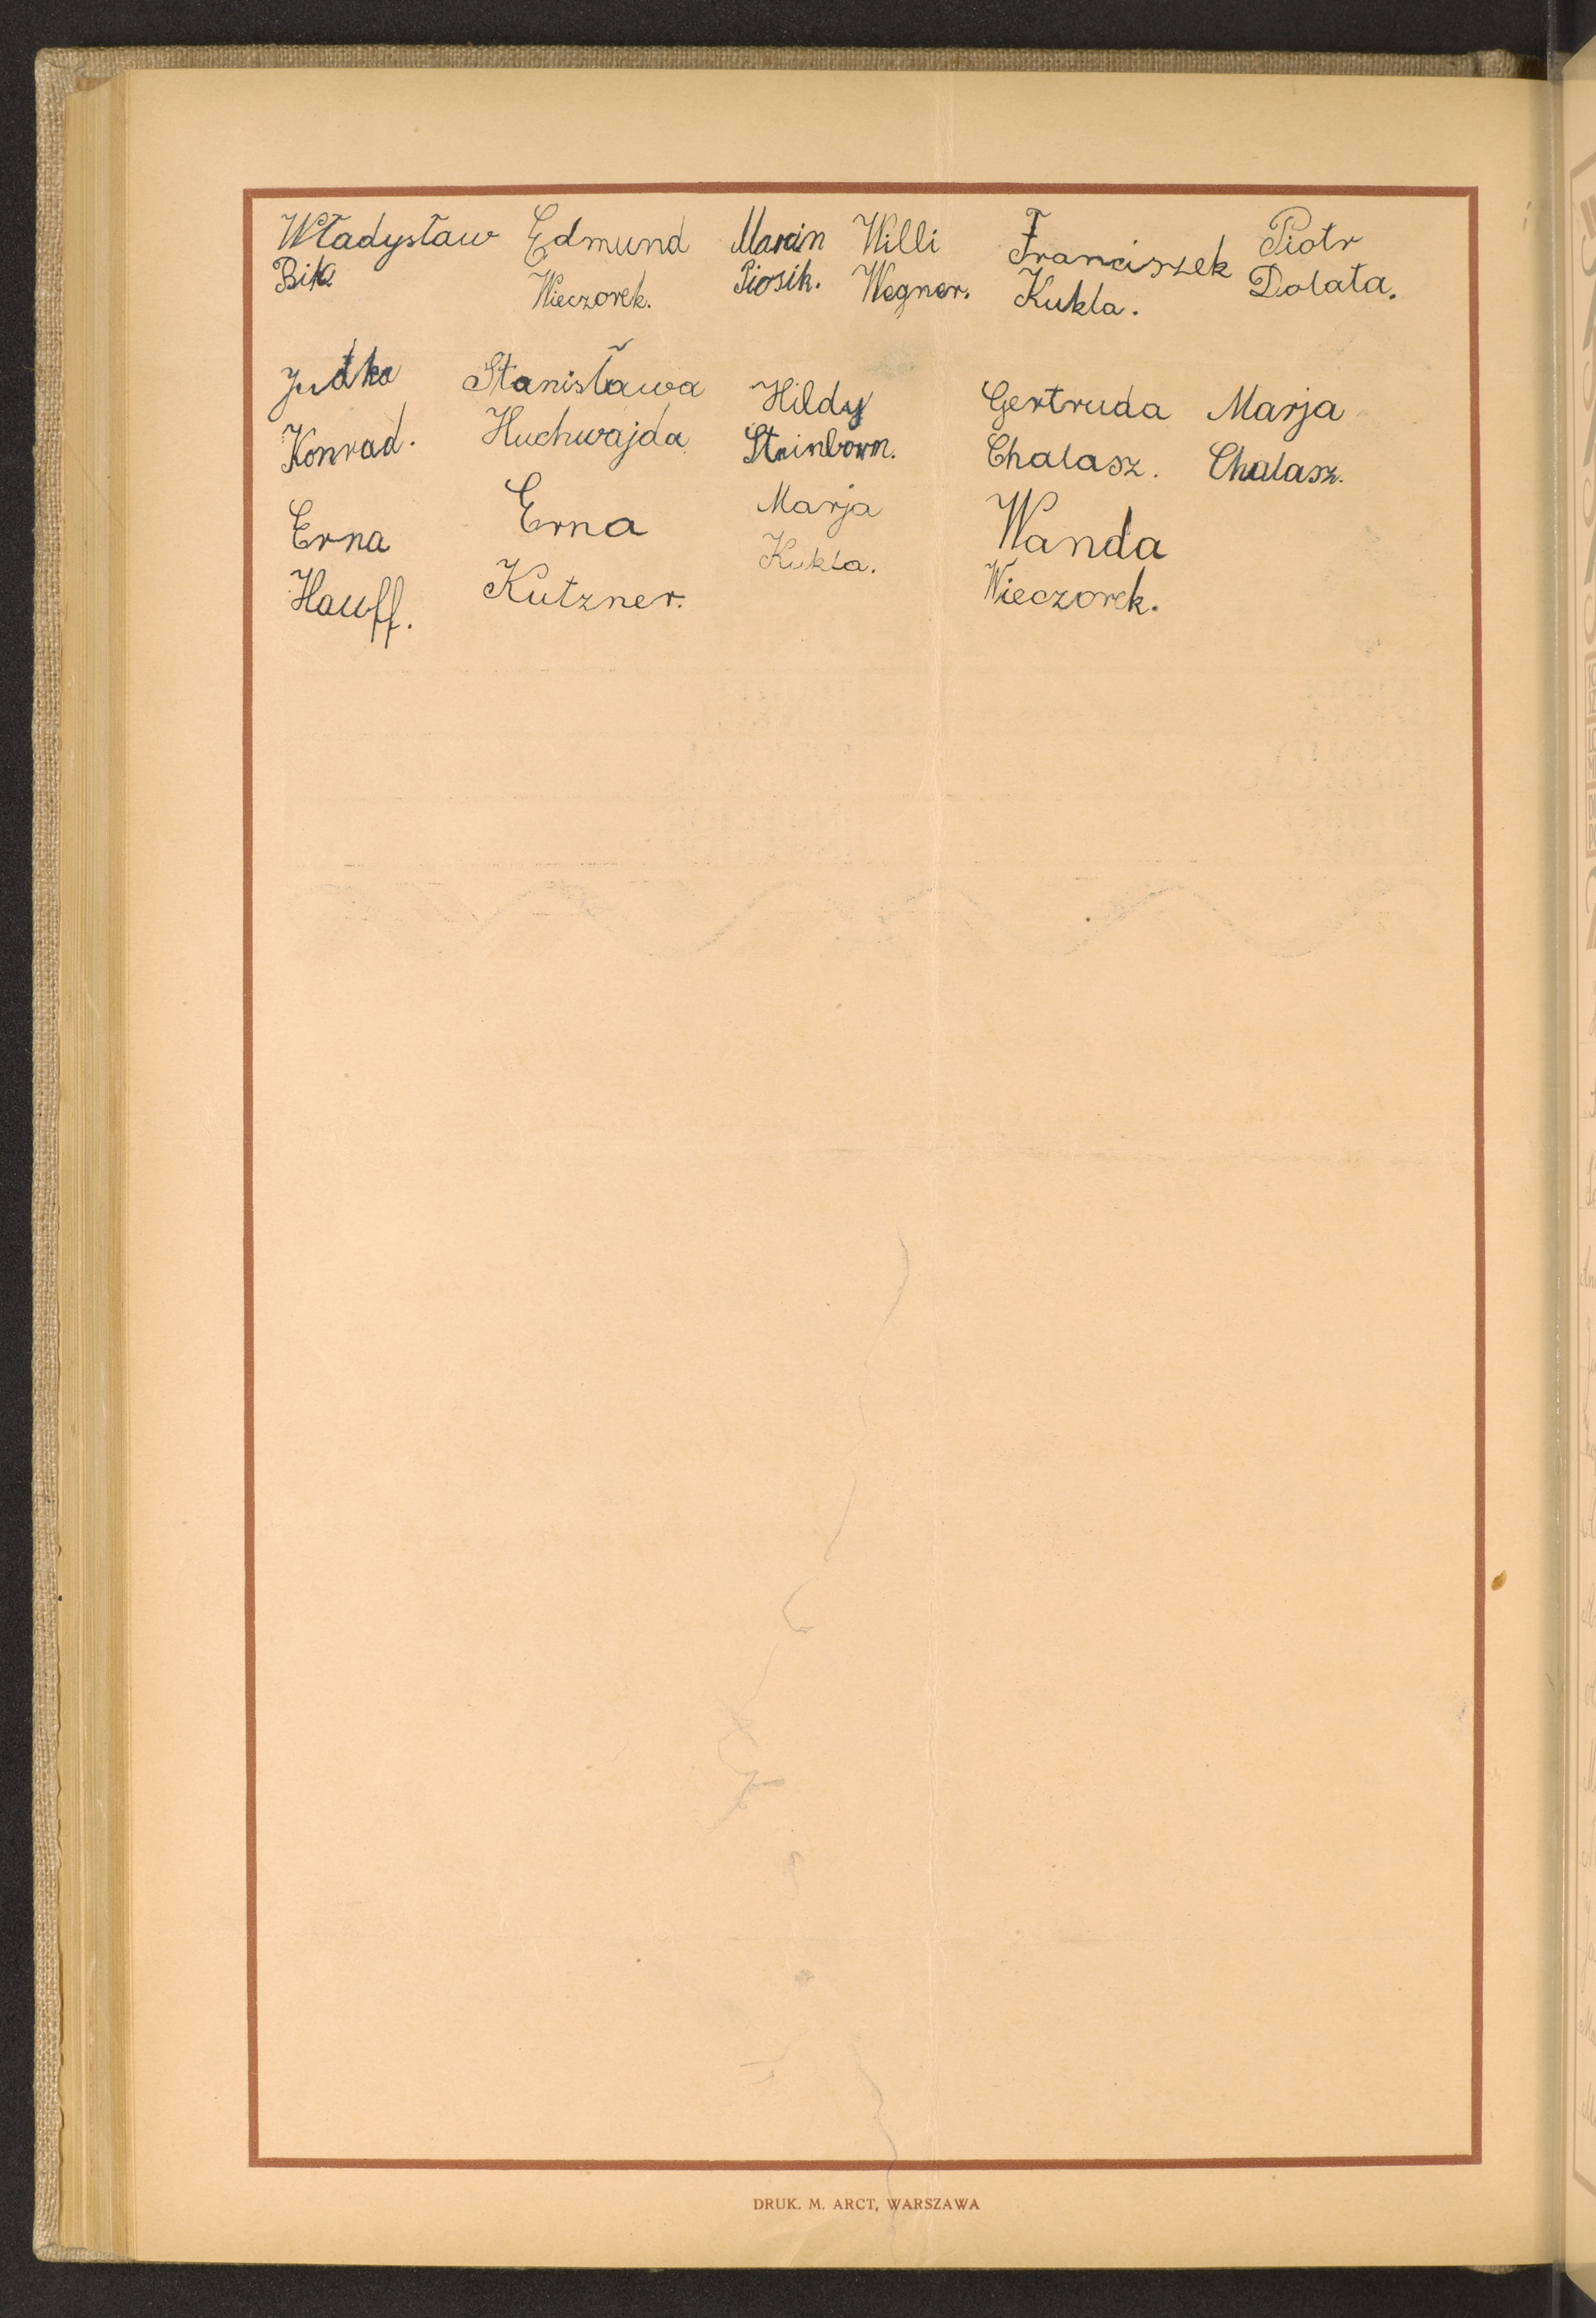 Władysław Edmund Marcin Willi Franciszek Piotr
Bika Wieczorek. Piosik. Wegner. Kukla. Dolata.
Judka Stanisława Hildy Gertruda Marja
Konrad. Huchwajda Steinborn. Chalasz. Chalasz.
Erna Erna Marja Wanda
Hauff. Kutzner. Kukla. Wieczorek.
DRUK. M. ARCT, WARSZAWA